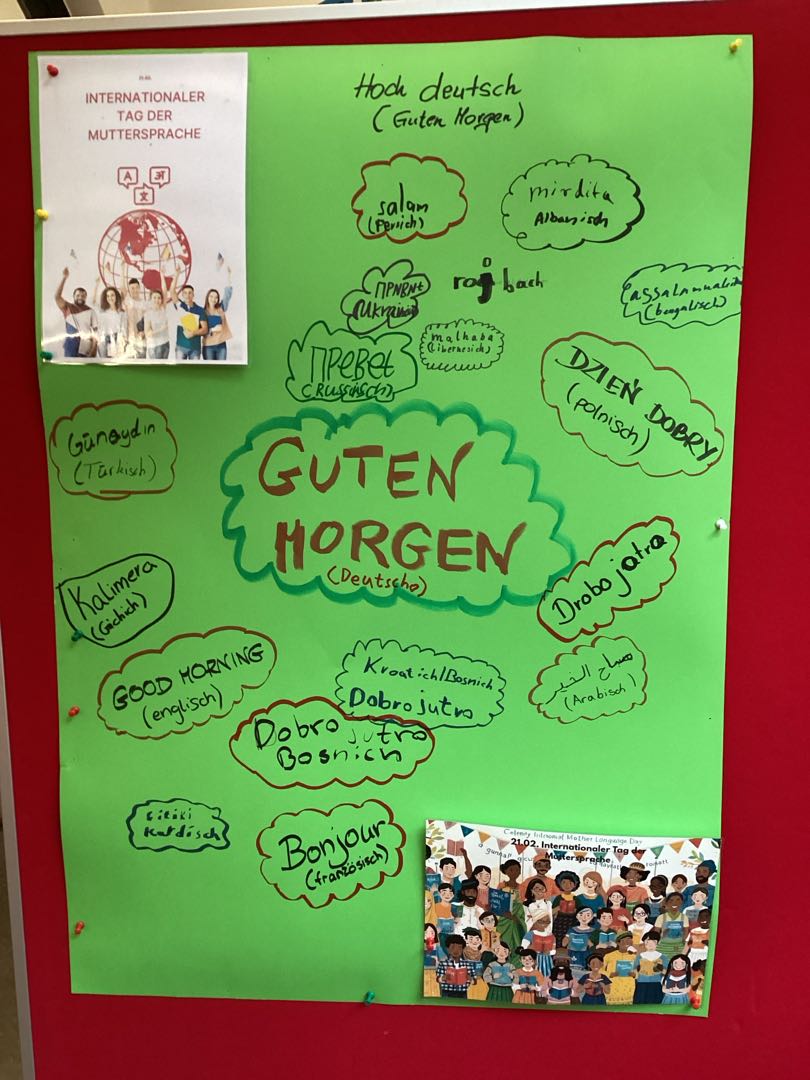 21.02.
INTERNATIONALER
TAG DER
MUTTERSPRACHE
Hoch deutsch
(Guten Morgen)
salam
(Persich)
mirdita
Albanisch
roj bach
assalamualai
(bengalisch)
Ukrainisch
malhaba
(libenesich)
ПРеВеt
(Russisch)
DZIEŃ DOBRY
(polnisch)
Günaydın
(Türkisch)
GUTEN
MORGEN
(Deutsch)
Kalimera
(Gichich)
Drobo jatra
GOOD MORNING
(englisch)
Kroatich/Bosnich
Dobro jutro
صباح الخير
(Arabisch)
Dobro jutro
Bosnich
Kurdisch
Bonjour
(französisch)
21.02. Internationaler Tag der
Muttersprache